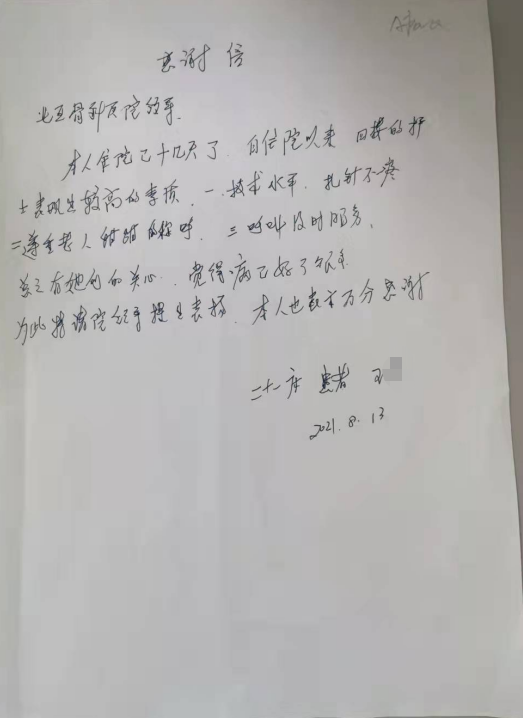 感谢信
北亚骨科医院领导
本人住院已十几天了.自住院以来 四楼的护
士表现出较高的素质.一.技术水平.扎针不疼
二尊重老人 甜甜的称呼.三呼叫及时服务.
总之有她们的关心.觉得病已好了很多
为此特请院领导提出表扬.本人也表示万分感谢
二十一床 患者 王
2021.8.13